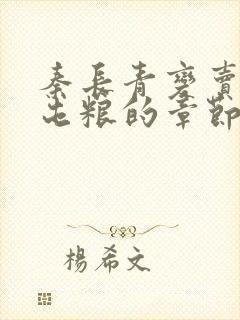 秦長青變賣
屯糧的章節
楊希文